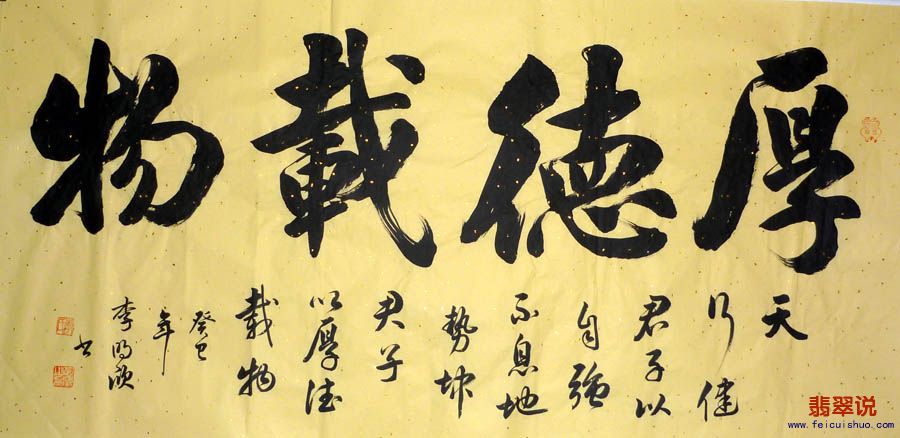 厚德載物
天
行健
君子以
自強
不息地
勢坤
君子
以厚德
載物
癸巳
年
李明
书
翡翠说
www.feicuishuo.com